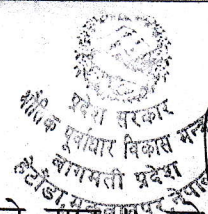 प्रदेश सरकार
भौतिक पूर्वाधार विकास
बागमती प्रदेश
हेटौंडा, मकवानपुर, नेपाल